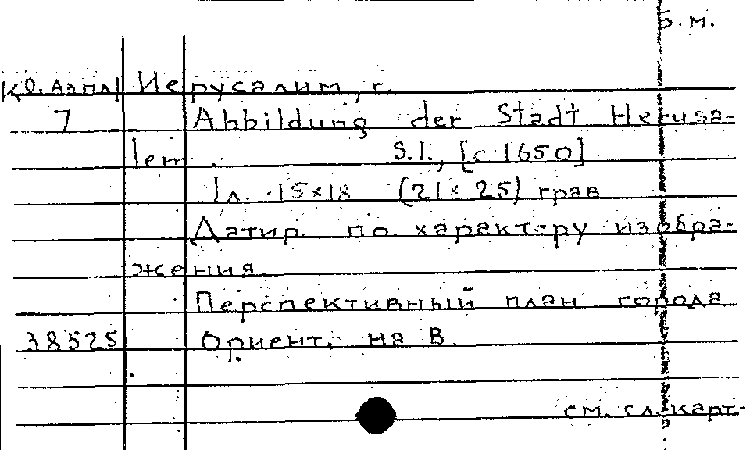 б.м.
Иерусалим, г.
7 Abbildung der Stadt Herusa-
lem. S.l., [c 1650]
1л. 15×18 (21×25) грав
Датир. по характеру изобра-
жения.
Перспективный план города
38525 Ориент. на В.
см. сл. карт.